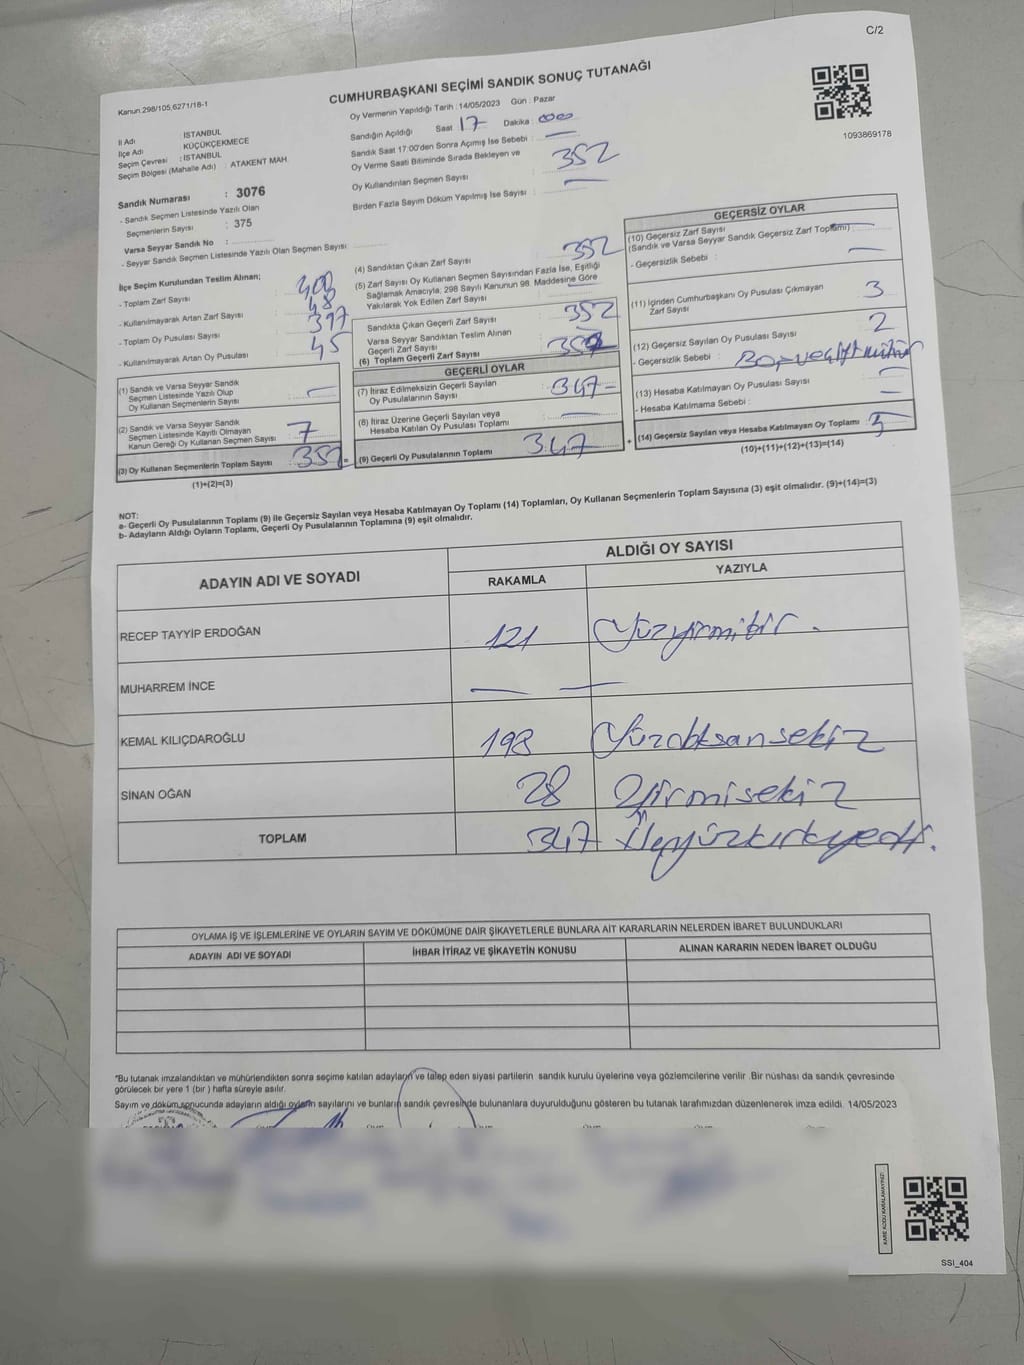 C/2
Kanun.298/105,6271/18-1
CUMHURBAŞKANI SEÇİMİ SANDIK SONUÇ TUTANAĞI
1093869178
İl Adı İSTANBUL
İlçe Adı KÜÇÜKÇEKMECE
Seçim Çevresi : İSTANBUL
Seçim Bölgesi (Mahalle Adı) : ATAKENT MAH.
Sandık Numarası : 3076
- Sandık Seçmen Listesinde Yazılı Olan
Seçmenlerin Sayısı : 375
Varsa Seyyar Sandık No :
- Seyyar Sandık Seçmen Listesinde Yazılı Olan Seçmen Sayısı:
Oy Vermenin Yapıldığı Tarih :14/05/2023 Gün : Pazar
Sandığın Açıldığı Saat 17 Dakika 000
Sandık Saat 17:00'den Sonra Açımış İse Sebebi : —
Oy Verme Saati Bitiminde Sırada Bekleyen ve
Oy Kullandırılan Seçmen Sayısı 352
Birden Fazla Sayım Döküm Yapılmış İse Sayısı : —
İlçe Seçim Kurulundan Teslim Alınan;
- Toplam Zarf Sayısı : 400
- Kullanılmayarak Artan Zarf Sayısı : 48
- Toplam Oy Pusulası Sayısı : 397
- Kullanılmayarak Artan Oy Pusulası : 45
(1) Sandık ve Varsa Seyyar Sandık
Seçmen Listesinde Yazılı Olup
Oy Kullanan Seçmenlerin Sayısı : —
(2) Sandık ve Varsa Seyyar Sandık
Seçmen Listesinde Kayıtlı Olmayan
Kanun Gereği Oy Kullanan Seçmen Sayısı : 7
(3) Oy Kullanan Seçmenlerin Toplam Sayısı : 352 =
(1)+(2)=(3)
(4) Sandıktan Çıkan Zarf Sayısı : 352
(5) Zarf Sayısı Oy Kullanan Seçmen Sayısından Fazla İse, Eşitliği
Sağlamak Amacıyla, 298 Sayılı Kanunun 98. Maddesine Göre
Yakılarak Yok Edilen Zarf Sayısı :
Sandıkta Çıkan Geçerli Zarf Sayısı : 352
Varsa Seyyar Sandıktan Teslim Alınan
Geçerli Zarf Sayısı : —
(6) Toplam Geçerli Zarf Sayısı : 352
GEÇERLİ OYLAR
(7) İtiraz Edilmeksizin Geçerli Sayılan
Oy Pusulalarının Sayısı : 347 -
(8) İtiraz Üzerine Geçerli Sayılan veya
Hesaba Katılan Oy Pusulası Toplamı : —
(9) Geçerli Oy Pusulalarının Toplamı : 347 +
GEÇERSİZ OYLAR
(10) Geçersiz Zarf Sayısı : —
(Sandık ve Varsa Seyyar Sandık Geçersiz Zarf Toplamı)
- Geçersizlik Sebebi : —
(11) İçinden Cumhurbaşkanı Oy Pusulası Çıkmayan
Zarf Sayısı : 3
(12) Geçersiz Sayılan Oy Pusulası Sayısı : 2
- Geçersizlik Sebebi : Boş ve çift mühür
(13) Hesaba Katılmayan Oy Pusulası Sayısı : —
- Hesaba Katılmama Sebebi : —
(14) Geçersiz Sayılan veya Hesaba Katılmayan Oy Toplamı : 5
(10)+(11)+(12)+(13)=(14)
NOT:
a- Geçerli Oy Pusulalarının Toplamı (9) ile Geçersiz Sayılan veya Hesaba Katılmayan Oy Toplamı (14) Toplamları, Oy Kullanan Seçmenlerin Toplam Sayısına (3) eşit olmalıdır. (9)+(14)=(3)
b- Adayların Aldığı Oyların Toplamı, Geçerli Oy Pusulalarının Toplamına (9) eşit olmalıdır.
ADAYIN ADI VE SOYADI
ALDIĞI OY SAYISI
RAKAMLA YAZIYLA
RECEP TAYYİP ERDOĞAN 121 Yüzyirmibir.
MUHARREM İNCE — —
KEMAL KILIÇDAROĞLU 198 Yüzoksansekiz
SİNAN OĞAN 28 Yirmisekiz
TOPLAM 347 Üçyüzkırkyedi.
OYLAMA İŞ VE İŞLEMLERİNE VE OYLARIN SAYIM VE DÖKÜMÜNE DAİR ŞİKAYETLERLE BUNLARA AİT KARARLARIN NELERDEN İBARET BULUNDUKLARI
ADAYIN ADI VE SOYADI İHBAR İTİRAZ VE ŞİKAYETİN KONUSU ALINAN KARARIN NEDEN İBARET OLDUĞU
*Bu tutanak imzalandıktan ve mühürlendikten sonra seçime katılan adayların ve talep eden siyasi partilerin sandık kurulu üyelerine veya gözlemcilerine verilir .Bir nüshası da sandık çevresinde
görülecek bir yere 1 (bir ) hafta süreyle asılır.
Sayım ve döküm sonucunda adayların aldığı oyların sayılarını ve bunların sandık çevresinde bulunanlara duyurulduğunu gösteren bu tutanak tarafımızdan düzenlenerek imza edildi. 14/05/2023
KARE KODU KARALAMAYINIZ!
SSI_404